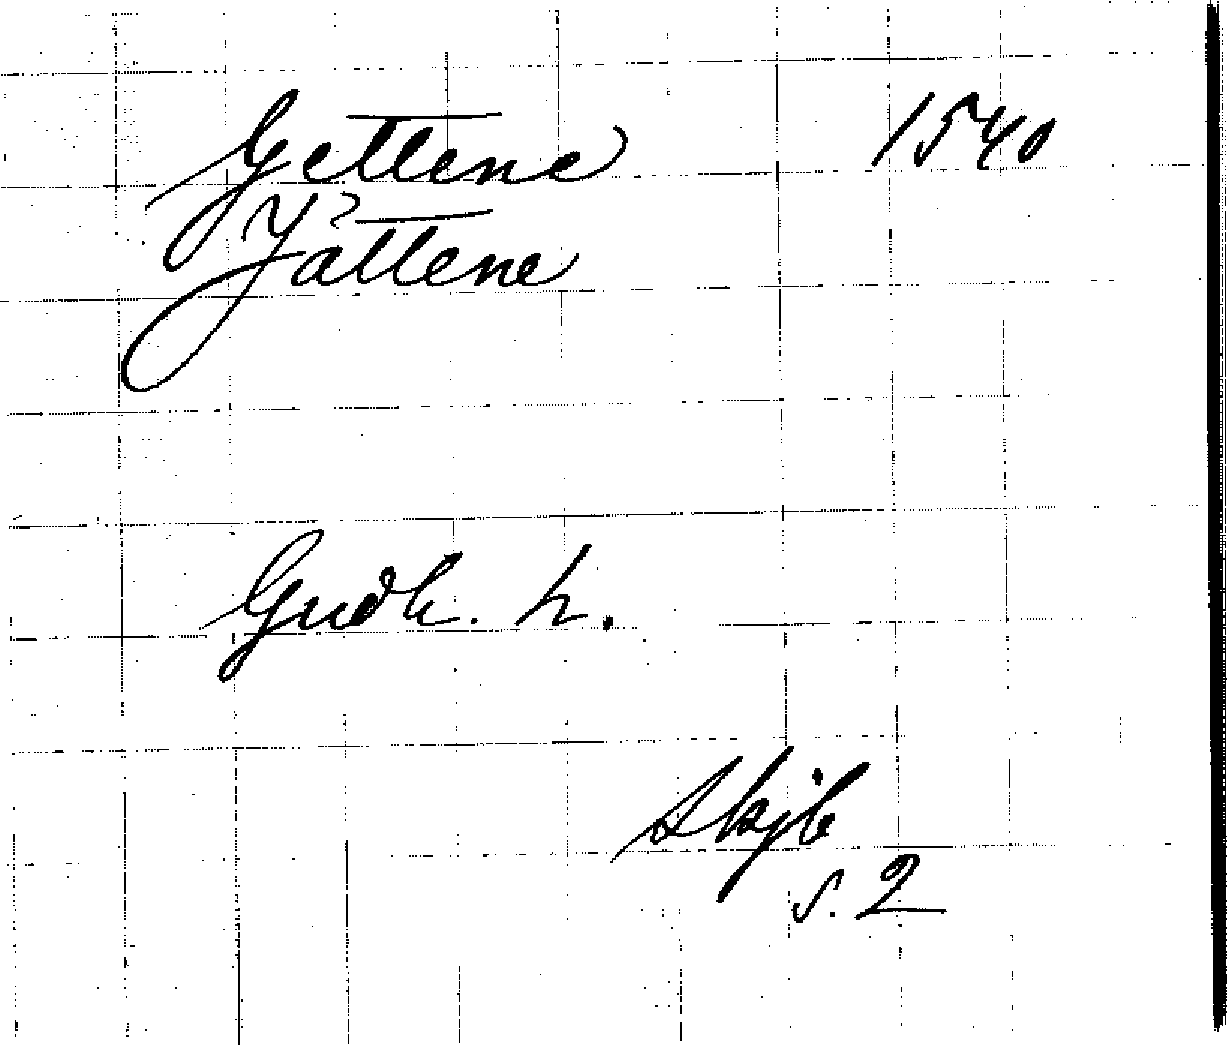 Gettene 1540
Jättene
Gudh. h.
Skjb
s. 2